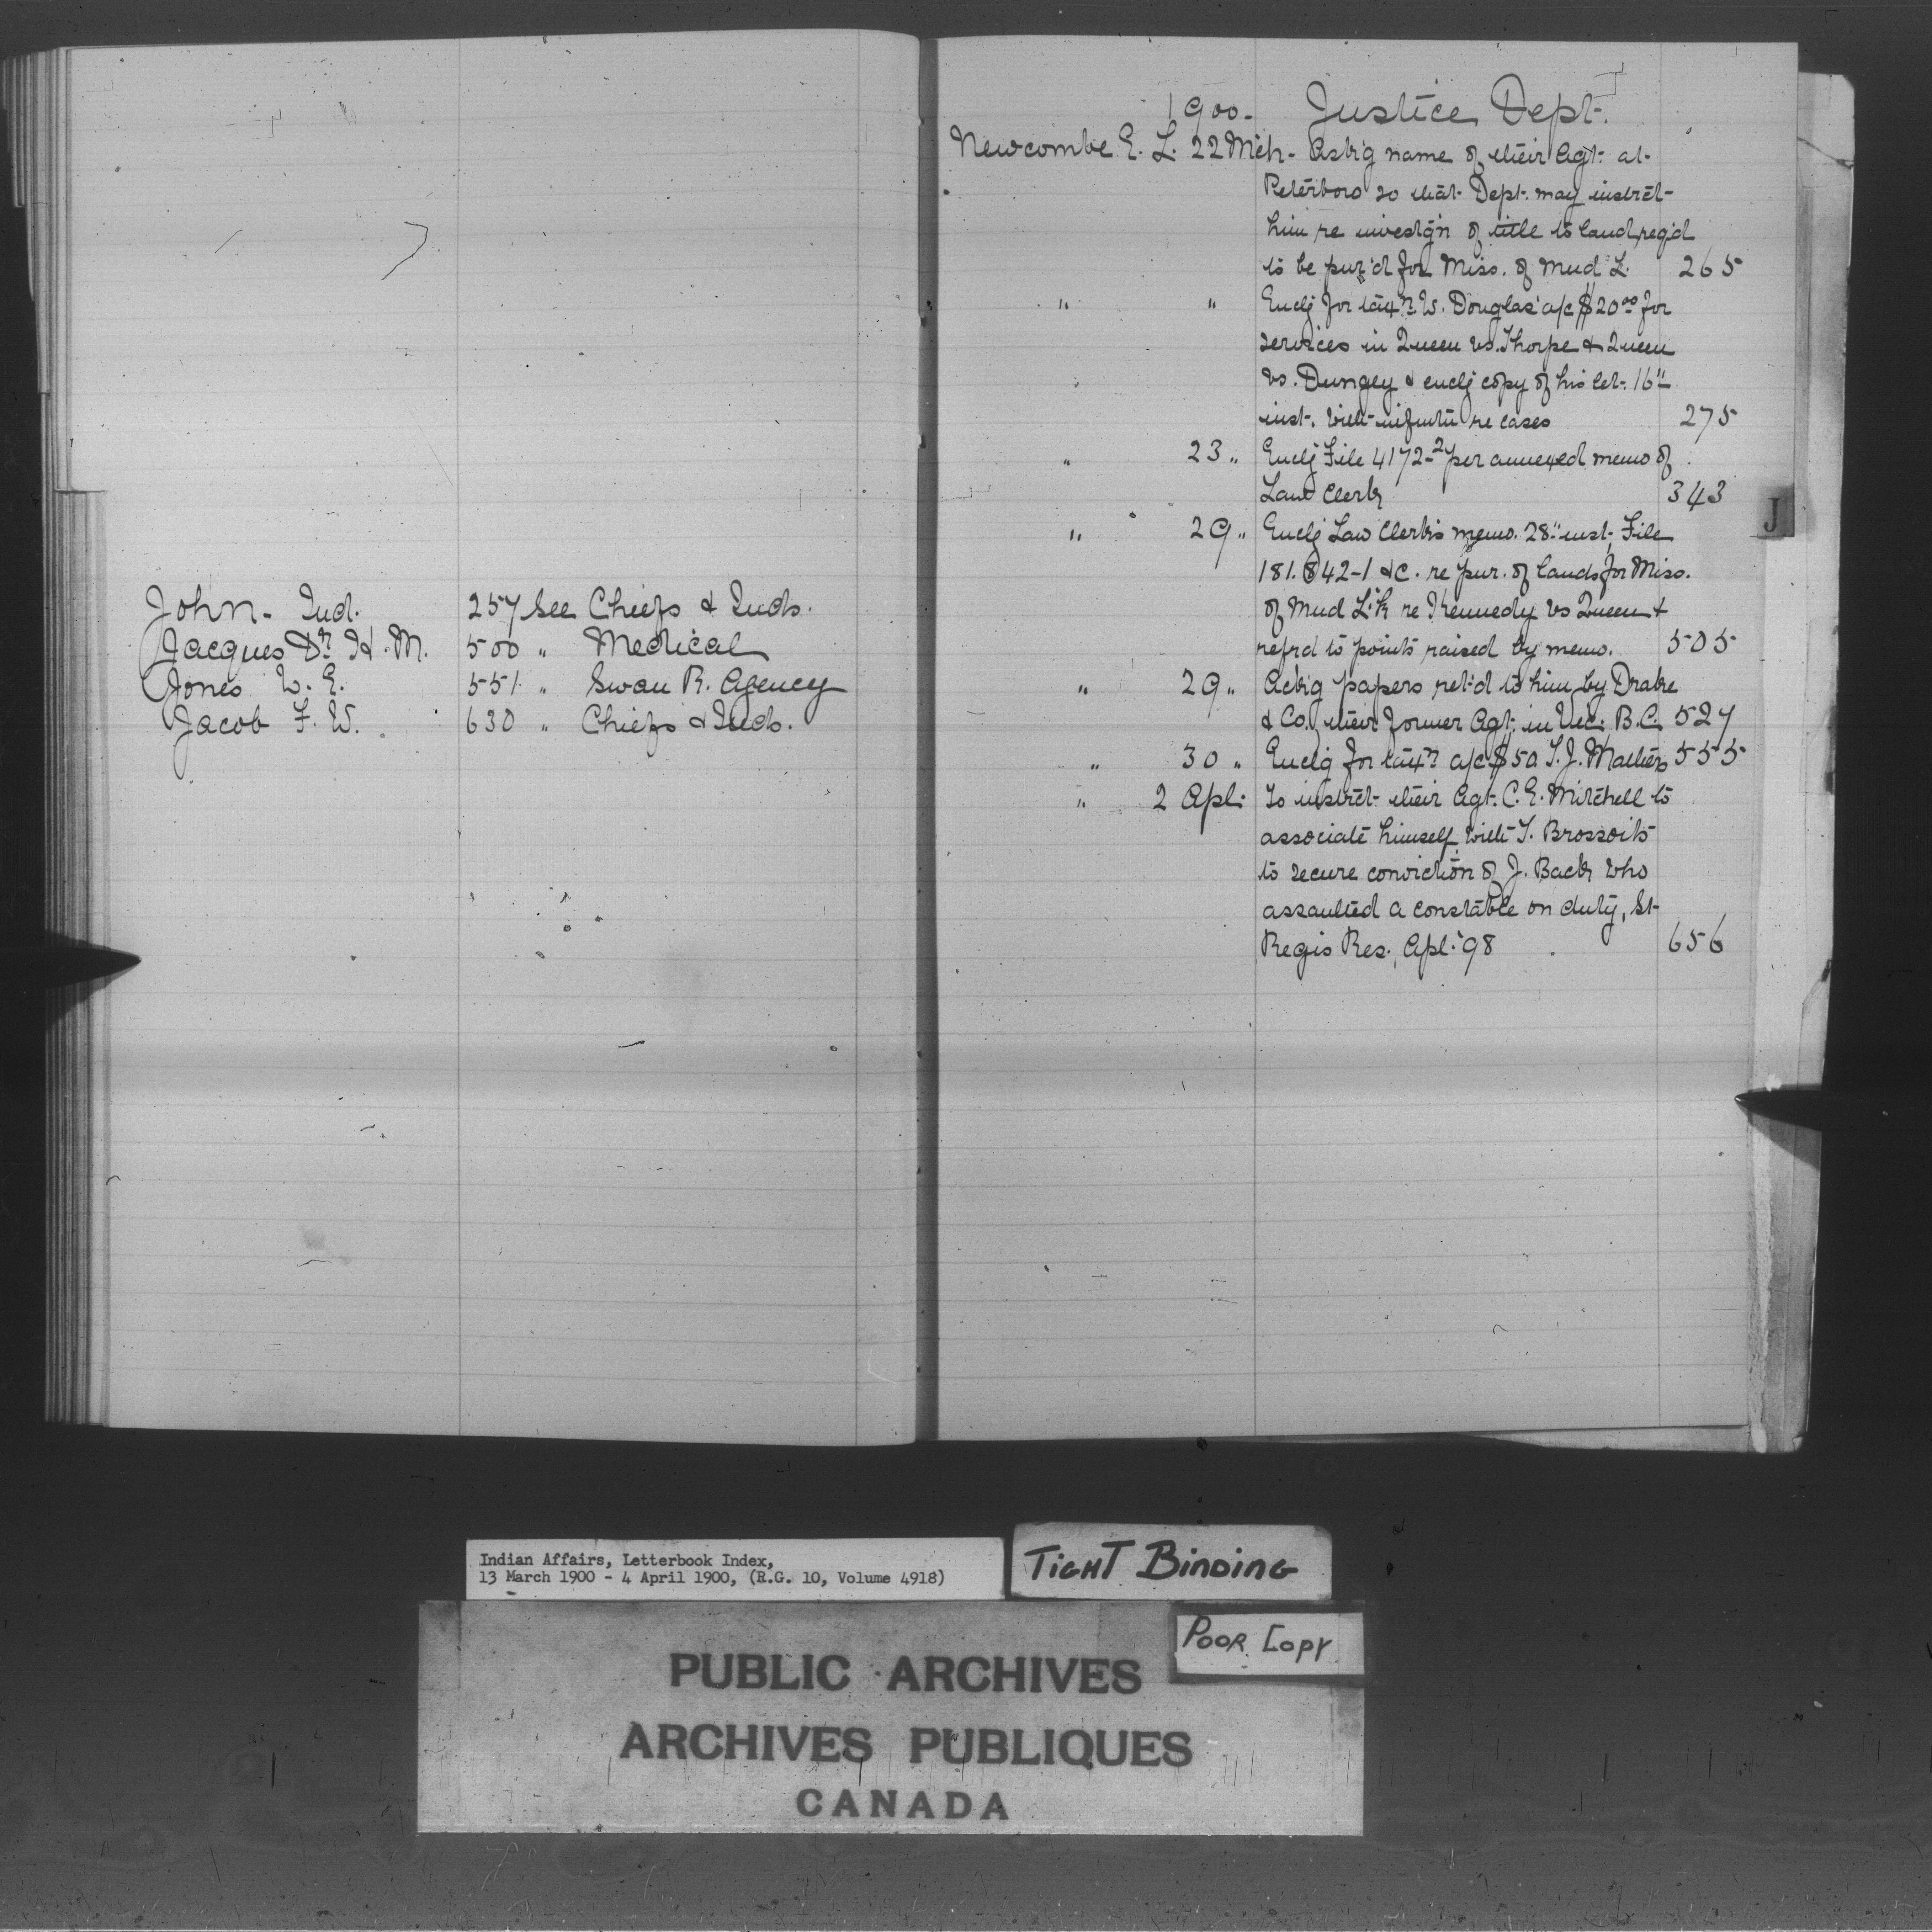 John - Ind. 257 See Chiefs & Inds.
Jacques Dr. H. M. 500 " Medical
Jones W. E. 551 " Swan R. Agency
Jacob F. W. 630 " Chiefs & Inds.
1900 - Justice Dept.
Newcombe E. L. 22 Mch - Ask'g name of their Agt. at
Peterboro so that Dept. may instrct
him re investg'n of title to land reg'd
to be pur'd for Miss. of Mud L. 265
" " Enclg for tax'n W. Douglas' a/c $20.00 for
services in Queen vs. Thorpe & Queen
vs. Dungey & enclg copy of his let. 16"
inst. with infmtn re cases 275
" 23 " Enclg File 4172-2 per annexed memo of
Law Clerk 343
" 29 " Enclg Law Clerk's memo. 28" inst. File
181.842-1 &c. re pur. of lands for Miss.
of Mud L'k re Kennedy vs Queen &
refrd to points raised by memo. 505
" 29 " Ack'g papers ret'd to him by Drake
& Co. their former Agt. in Vic. B.C. 527
" 30 " Enclg for tax'n a/c $50 T. J. Mathers 555
" 2 Apl. To instrct their Agt. C. E. Mitchell to
associate himself with T. Brossoit
to secure conviction of J. Back who
assaulted a constable on duty, St-
Regis Res., Apl. '98 656
J
Indian Affairs, Letterbook Index,
13 March 1900 - 4 April 1900, (R.G. 10, Volume 4918)
TIGHT BINDING
POOR COPY
PUBLIC ARCHIVES
ARCHIVES PUBLIQUES
CANADA